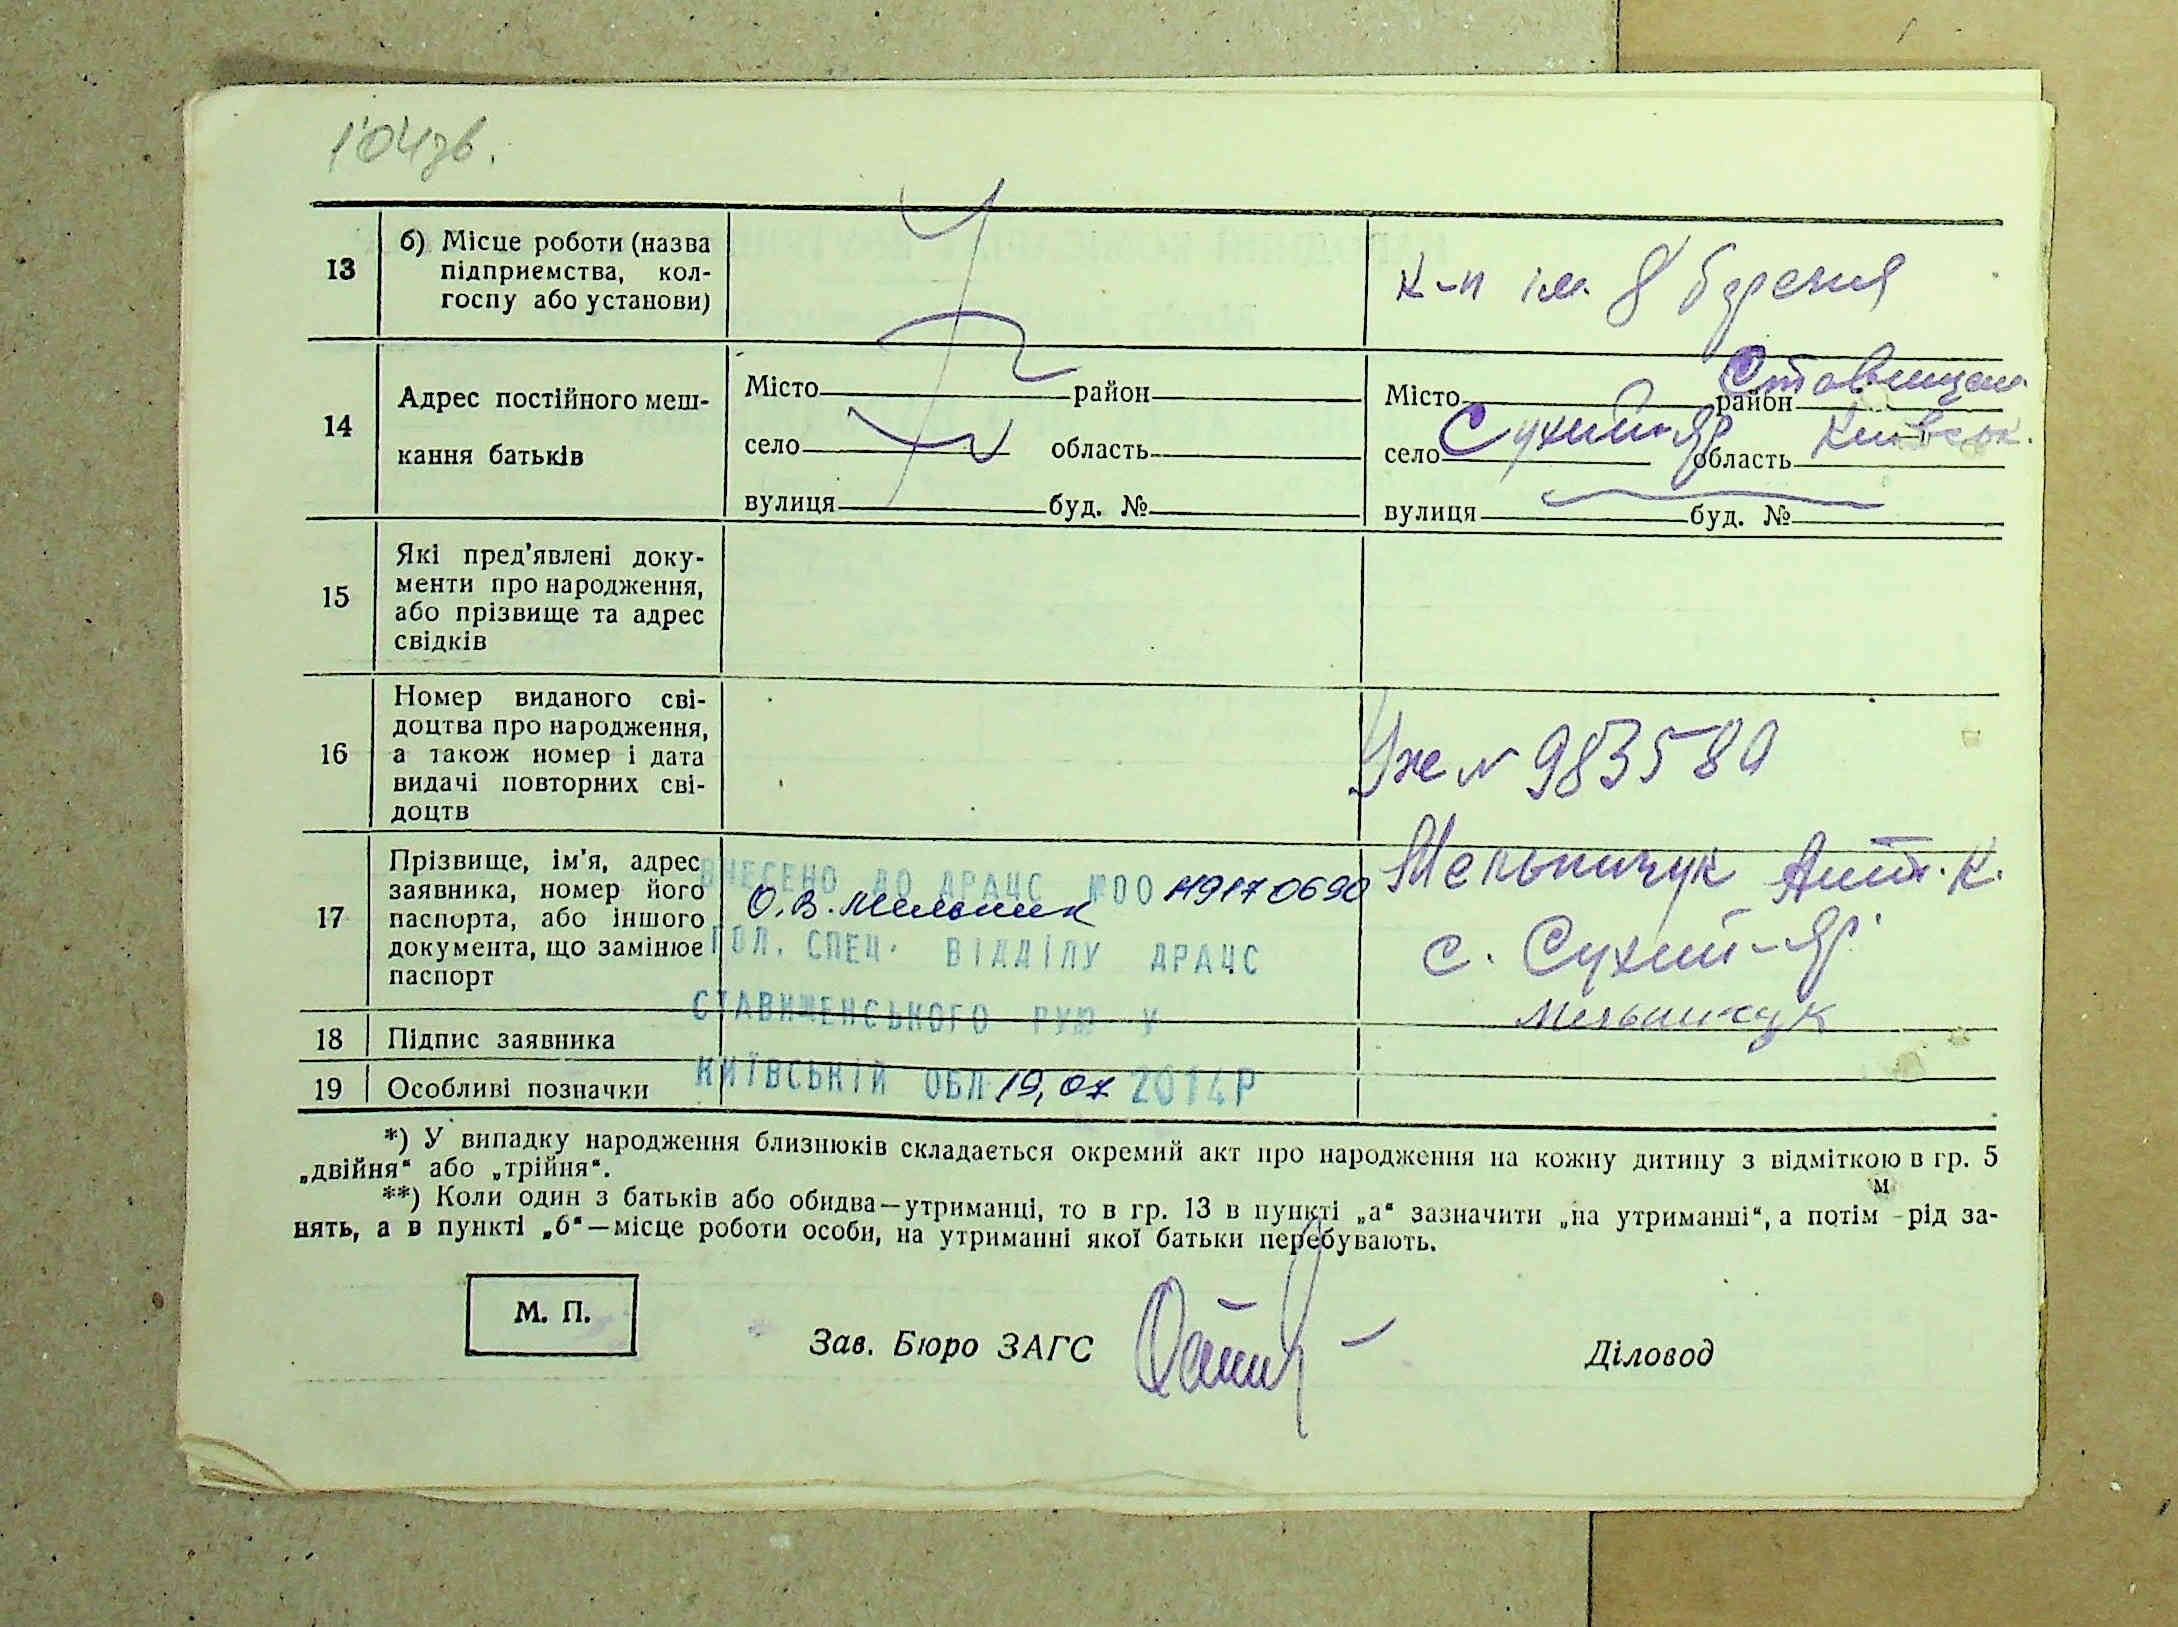 104зв.
13
б) Місце роботи (назва
підприємства, кол-
госпу або установи)
к-п ім. 8 березня
14
Адрес постійного меш-
кання батьків
Місто район
село область
вулиця буд. №
Місто район Ставищан.
село Сухий-Яр область Київськ.
вулиця буд. №
15
Які пред'явлені доку-
менти про народження,
або прізвище та адрес
свідків
16
Номер виданого сві-
доцтва про народження,
а також номер і дата
видачі повторних сві-
доцтв
№ 983580
17
Прізвище, ім'я, адрес
заявника, номер його
паспорта, або іншого
документа, що замінює
паспорт
ВНЕСЕНО ДО ДРАЦС №00 Н9170690
О.В. Мельник
ГОЛ. СПЕЦ. ВІДДІЛУ ДРАЦС
СТАВИЩЕНСЬКОГО РУЮ У
КИЇВСЬКІЙ ОБЛ 19,07 2014Р
Мельничук Ант. К.
с. Сухий-Яр.
18
Підпис заявника
Мельничук
19
Особливі позначки
*) У випадку народження близнюків складається окремий акт про народження на кожну дитину з відміткою в гр. 5
„двійня“ або „трійня“.
м
**) Коли один з батьків або обидва—утриманці, то в гр. 13 в пункті „а“ зазначити „на утриманні“, а потім -рід за-
нять, а в пункті „б“—місце роботи особи, на утриманні якої батьки перебувають.
М. П.
Зав. Бюро ЗАГС
Діловод